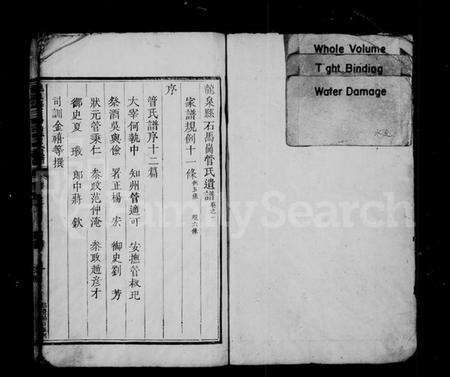 龍泉縣石馬崗管氏遺譜 卷之一
家譜規例十一條 例五條 規六條
序
管氏譜序十二篇
太宰何執中 知州管適可 安撫管樅玘
祭酒吳與儉 署正楊宏 御史劉芳
狀元管秉仁 參政范仲淹 參政趙彥才
御史夏瑴 郎中蔣欽
司訓金禧等撰
Whole Volume
Tight Binding
Water Damage
FamilySearch